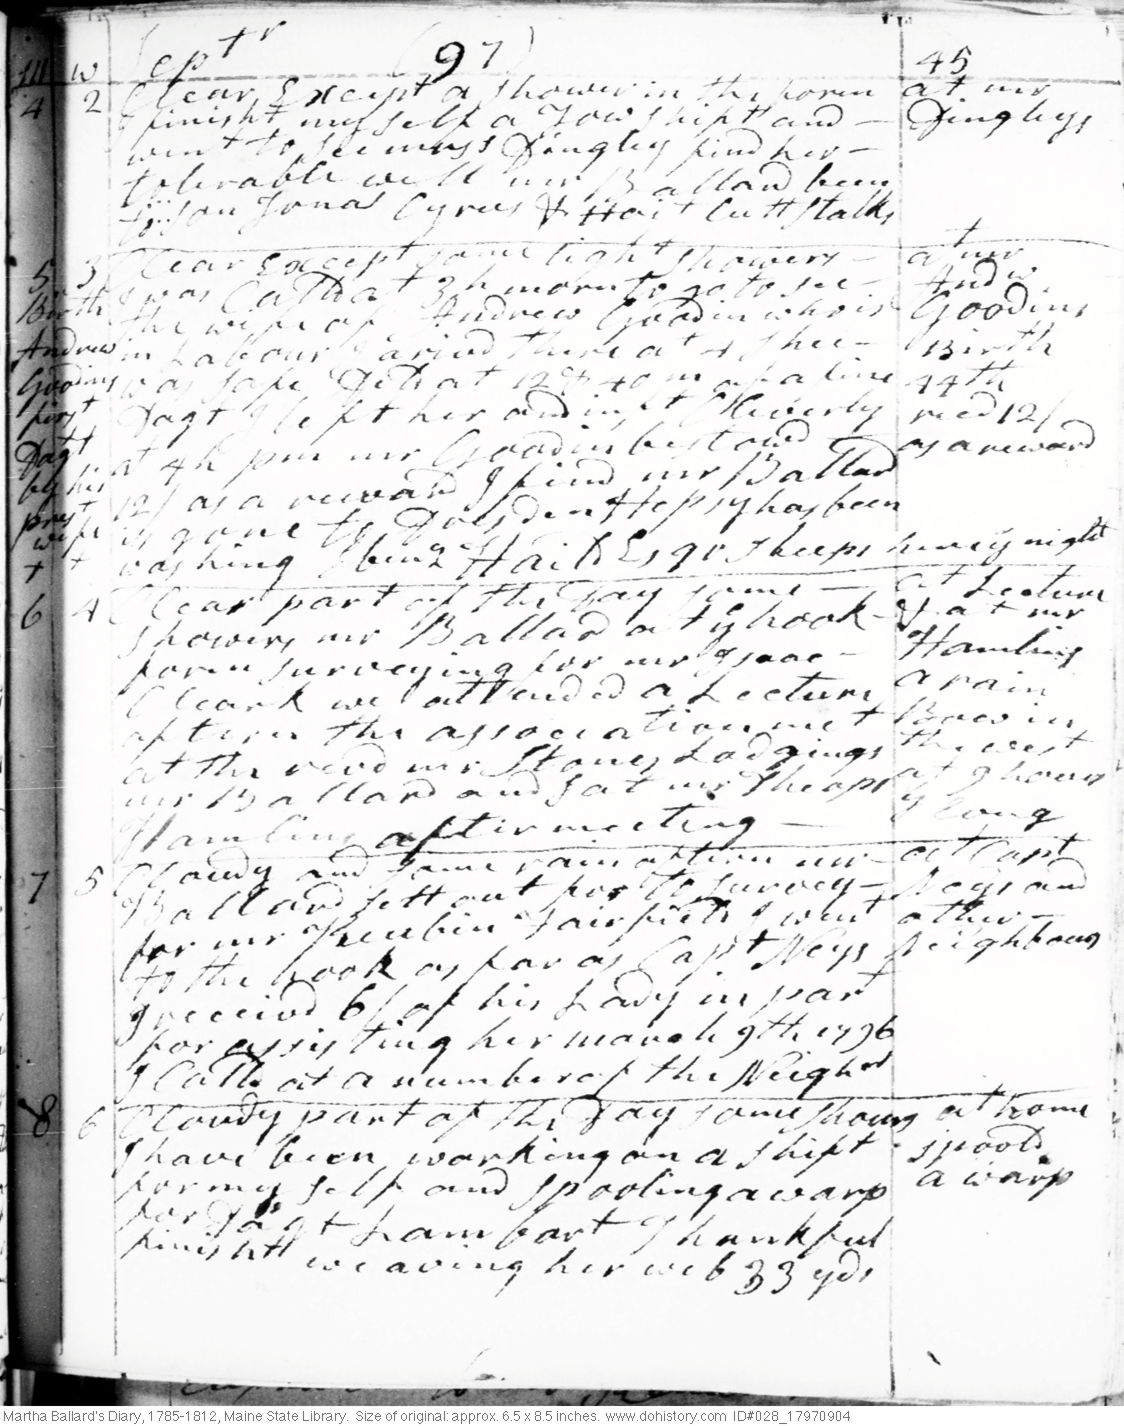 m w Septr (97) 45
4 2 Clear Except a shower in the foren at mr
I finisht my self a Tow shift and — Dingleys
went to see mrss Dingley find her —
tolerable well mr Ballard been
to son Jonas Cyrus & Hast Cutt stalks
5 3 Clear Except some light showers — at mr
I was Calld at 3 h morn to go to see — And w
Birth the wife of Andrew Goodin who is Goodins
Andrew in Labour I arivd there at 4 shee — Birth
Goodins was safe Deld at 12 & 40 m of a fine 44th
first Dagt I left her and inft Cleverly recd 12/
Dagt at 4 h pm mr Goodin bestowd as a reward
by his 12/ as a reward I find mr Ballard
prest is gone to Dresden Hepsy has been
wife washing Ebenz Haild Esqr sleeps here ys night
+ +
6 4 Clear part of the Day some — at Lecture
showers mr Ballard at ye hook & at mr
foren surveying for mr Isaac — Hamlins
Cleark we attended a Lecture a rain
aftern the association met Bow in
at the revd mr Stones Lodgings the west
mr Ballard and I at mr Theops at 9 hours
Hamlins after meeting — long
7 5 Cloudy and some rain aftern mr — at Capt
Ballard sett out for to survey — Neys and
for mr Reubin Fairfield I went other —
to the hook as far as Capt Neys Neighbours
I receivd 6/ of his Lady in part
for assisting her march 9th 1796
I Calld at a number of the Neighrs
8 6 Cloudy part of the Day some showrs at home
I have been working on a shift spoold
for my self and spooling a warp a warp
for Dagt Lambart Thankful
finisht weaving her web 33 yds
Martha Ballard's Diary, 1785-1812, Maine State Library. Size of original: approx. 6.5 x 8.5 inches. www.dohistory.com ID#028_17970904